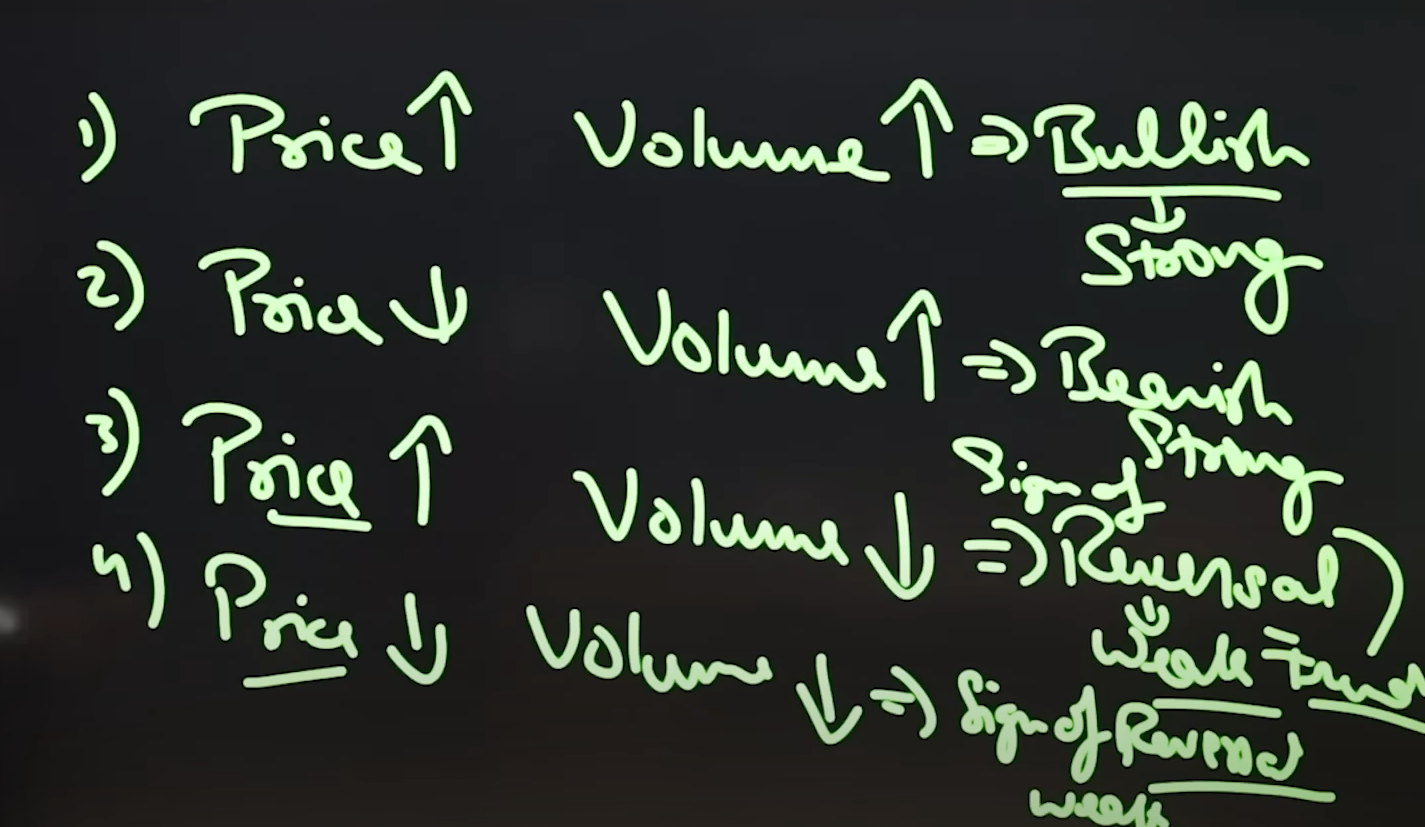 1) Price ↑ Volume ↑ ⇒ Bullish
↓
Strong
2) Price ↓ Volume ↑ ⇒ Bearish
Strong
3) Price ↑ Volume ↓ ⇒ Sign of
Reversal
↓
Weak Trend
4) Price ↓ Volume ↓ ⇒ Sign of Reversal
weak